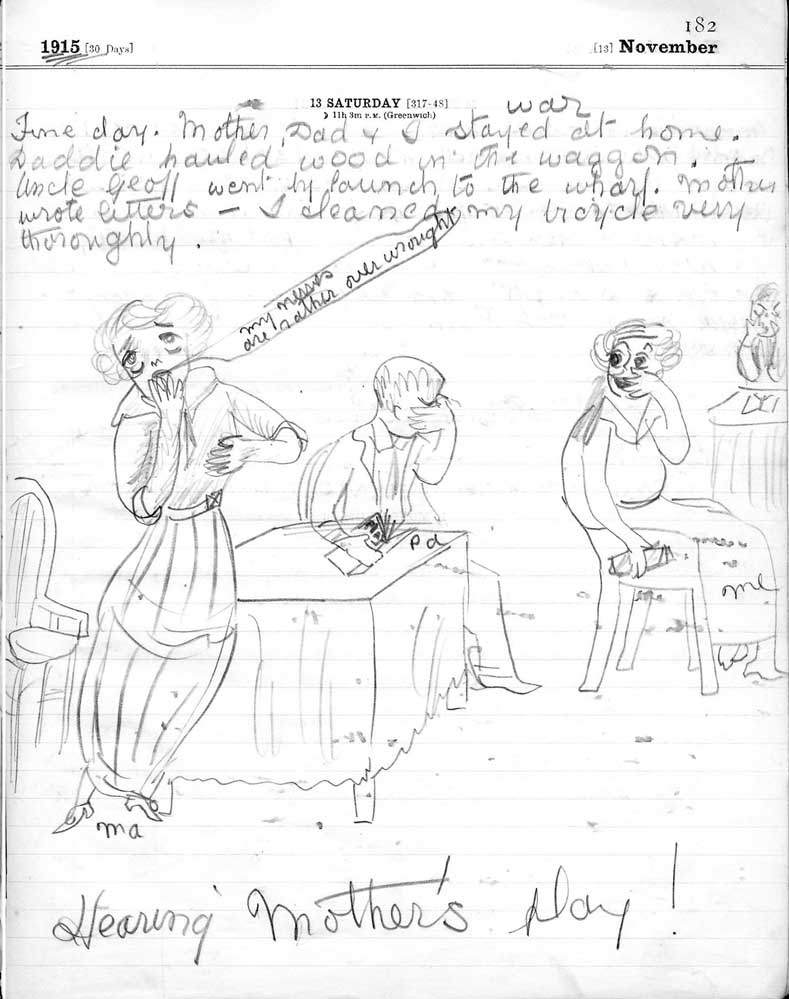 182
1915 [30 Days]
[13] November
13 SATURDAY [317-48]
☽ 11h 3m P.M. (Greenwich)
war
Fine day. Mother, Dad & I stayed at home.
Daddie hauled wood in the waggon.
Uncle Geoff went by launch to the wharf. Mother
wrote letters – I cleaned my bicycle very
thoroughly.
my nerves
are rather over wrought
pa
me
ma
Hearing Mother's play!